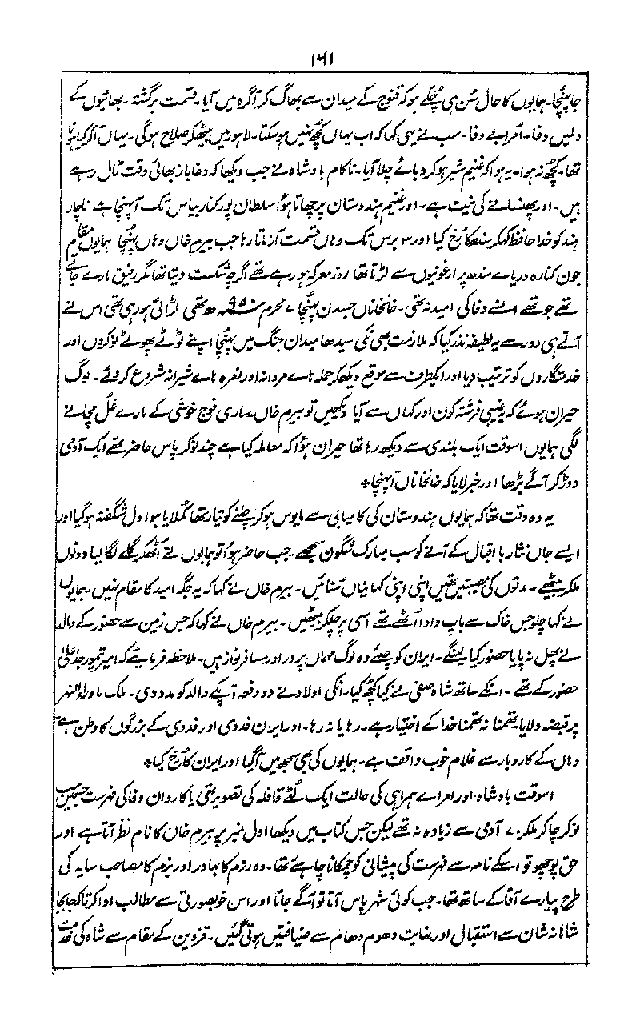 ۱۶۱
جا پہنچا۔ ہمایوں کا حال سُن ہی چکے ہو کہ قنوج کے میدان سے بھاگ کر آگرہ میں آیا۔ قسمت برگشتہ۔ بھائیوں کے
دلمیں دغا۔ اُمرا بے وفا۔ سب نے یہی کہا کہ اب یہاں کچھ نہیں ہو سکتا۔ لاہور میں بیٹھکر صلاح ہو گی۔ یہاں آکر کیا ہونا
تھا۔ کچھ نہ ہوا۔ یہ ہوا کہ غنیم شیر ہو کر دبائے چلا آیا۔ ناکام بادشاہ نے جب دیکھا کہ دغا باز بھائی وقت ٹال رہے
ہیں۔ اور پھنسانے کی نیت ہے۔ اور غنیم ہندوستان پر چھاتا ہوا سلطان پور کنار بیاس تک آ پہنچا ہے ناچار
ہند کو خدا حافظ کہکر سندھ کا رُخ کیا اور ۳ برس تک وہاں قسمت آزماتا رہا جب بیرم خاں وہاں پہنچا ہمایوں مقام
جون کنارہ دریاے سندھ پر ارغونیوں سے لڑتا تھا روز معرکے ہو رہے تھے اگرچہ شکست دیتا تھا مگر رفیق مارے جاتے
تھے جو تھے اُنسے وفا کی امید نہ تھی۔ خانخاناں جسدن پہنچا ۷ محرم ۹۵۰ھ تھی لڑائی ہو رہی تھی اس نے
آتے ہی دور سے یہ لطیفہ نذر کیا کہ ملازمت بھی نہ کی سیدھا میدان جنگ میں پہنچا اپنے ٹوٹے پھوٹے نوکروں اور
خدمتگاروں کو ترتیب دیا اور ایکطرف سے موقع دیکھکر حملہ ہاے مردانہ اور نعرہ ہاے شیرانہ شروع کر دئے۔ لوگ
حیران ہوئے کہ یہ غیبی فرشتہ کون اور کہاں سے آیا دیکھیں تو بیرم خاں ساری فوج خوشی کے مارے غل مچانے
لگی ہمایوں اسوقت ایک بلندی سے دیکھ رہا تھا حیران ہوا کہ معاملہ کیا ہے چند نوکر پاس حاضر تھے ایک آدمی
دوڑ کر آگے بڑھا اور خبر لایا کہ خانخاناں آ پہنچا *
یہ وہ وقت تھا کہ ہمایوں ہندوستان کی کامیابی سے مایوس ہو کر چلنے کو تیار تھا کُملایا ہوا دل شگفتہ ہو گیا اور
ایسے جاں نثار با اقبال کے آنے کو سب مبارک شگون سمجھے۔ جب حاضر ہوا تو ہمایوں نے اُٹھکر گلے لگا لیا دونوں
ملکر بیٹھے۔ مدتوں کی مصیبتیں تھیں اپنی اپنی کہانیاں سُنائیں۔ بیرم خاں نے کہا کہ یہ جگہ امید کا مقام نہیں۔ ہمایوں
نے کہا چلو جس خاک سے باپ دادا اُٹھے تھے اُسی پر چلکر بیٹھیں۔ بیرم خاں نے کہا کہ جس زمین سے حضور کے والد
نے پھل نہ پایا حضور کیا لینگے۔ ایران کو چلئے وہ لوگ مہماں پرور اور مسافر نواز ہیں۔ ملاحظہ فرمائیے کہ امیر تیمور جد اعلیٰ
حضور کے تھے۔ اُنکے ساتھ شاہ صفی نے کیا کچھ کیا۔ اُنکی اولاد نے دو دفعہ آپکے والد کو مدد دی۔ ملک ماوراءالنہر
پر قبضہ دلایا تھمنا نہ تھمنا خدا کے اختیار ہے۔ رہا یا نہ رہا۔ اور ایران فدوی اور فدوی کے بزرگوں کا وطن ہے
وہاں کے کاروبار سے غلام خوب واقف ہے۔ ہمایوں کی بھی سمجھ میں آ گیا اور ایران کا رُخ کیا *
اسوقت بادشاہ اور امراے ہمراہی کی حالت ایک لُٹے قافلہ کی تصویر تھی یا کاروان وفا کی فہرست جسمیں
نوکر چاکر ملکر ۷۰ آدمی سے زیادہ نہ تھے لیکن جس کتاب میں دیکھا اول نمبر پر بیرم خان کا نام نظر آتا ہے اور
حق پوچھو تو اُسکے نام سے فہرست کی پیشانی کو چمکانا چاہئے تھا۔ وہ رزم کا بہادر اور بزم کا مصاحب سایہ کی
طرح پیارے آقا کے ساتھ تھا۔ جب کوئی شہر پاس آتا تو آگے جاتا اور اس خوبصورتی سے مطالب ادا کرتا کہ جابجا
شاہانہ شان سے استقبال اور نہایت دھوم دھام سے ضیافتیں ہوتی گئیں۔ قزوین کے مقام سے شاہ کی خدمت